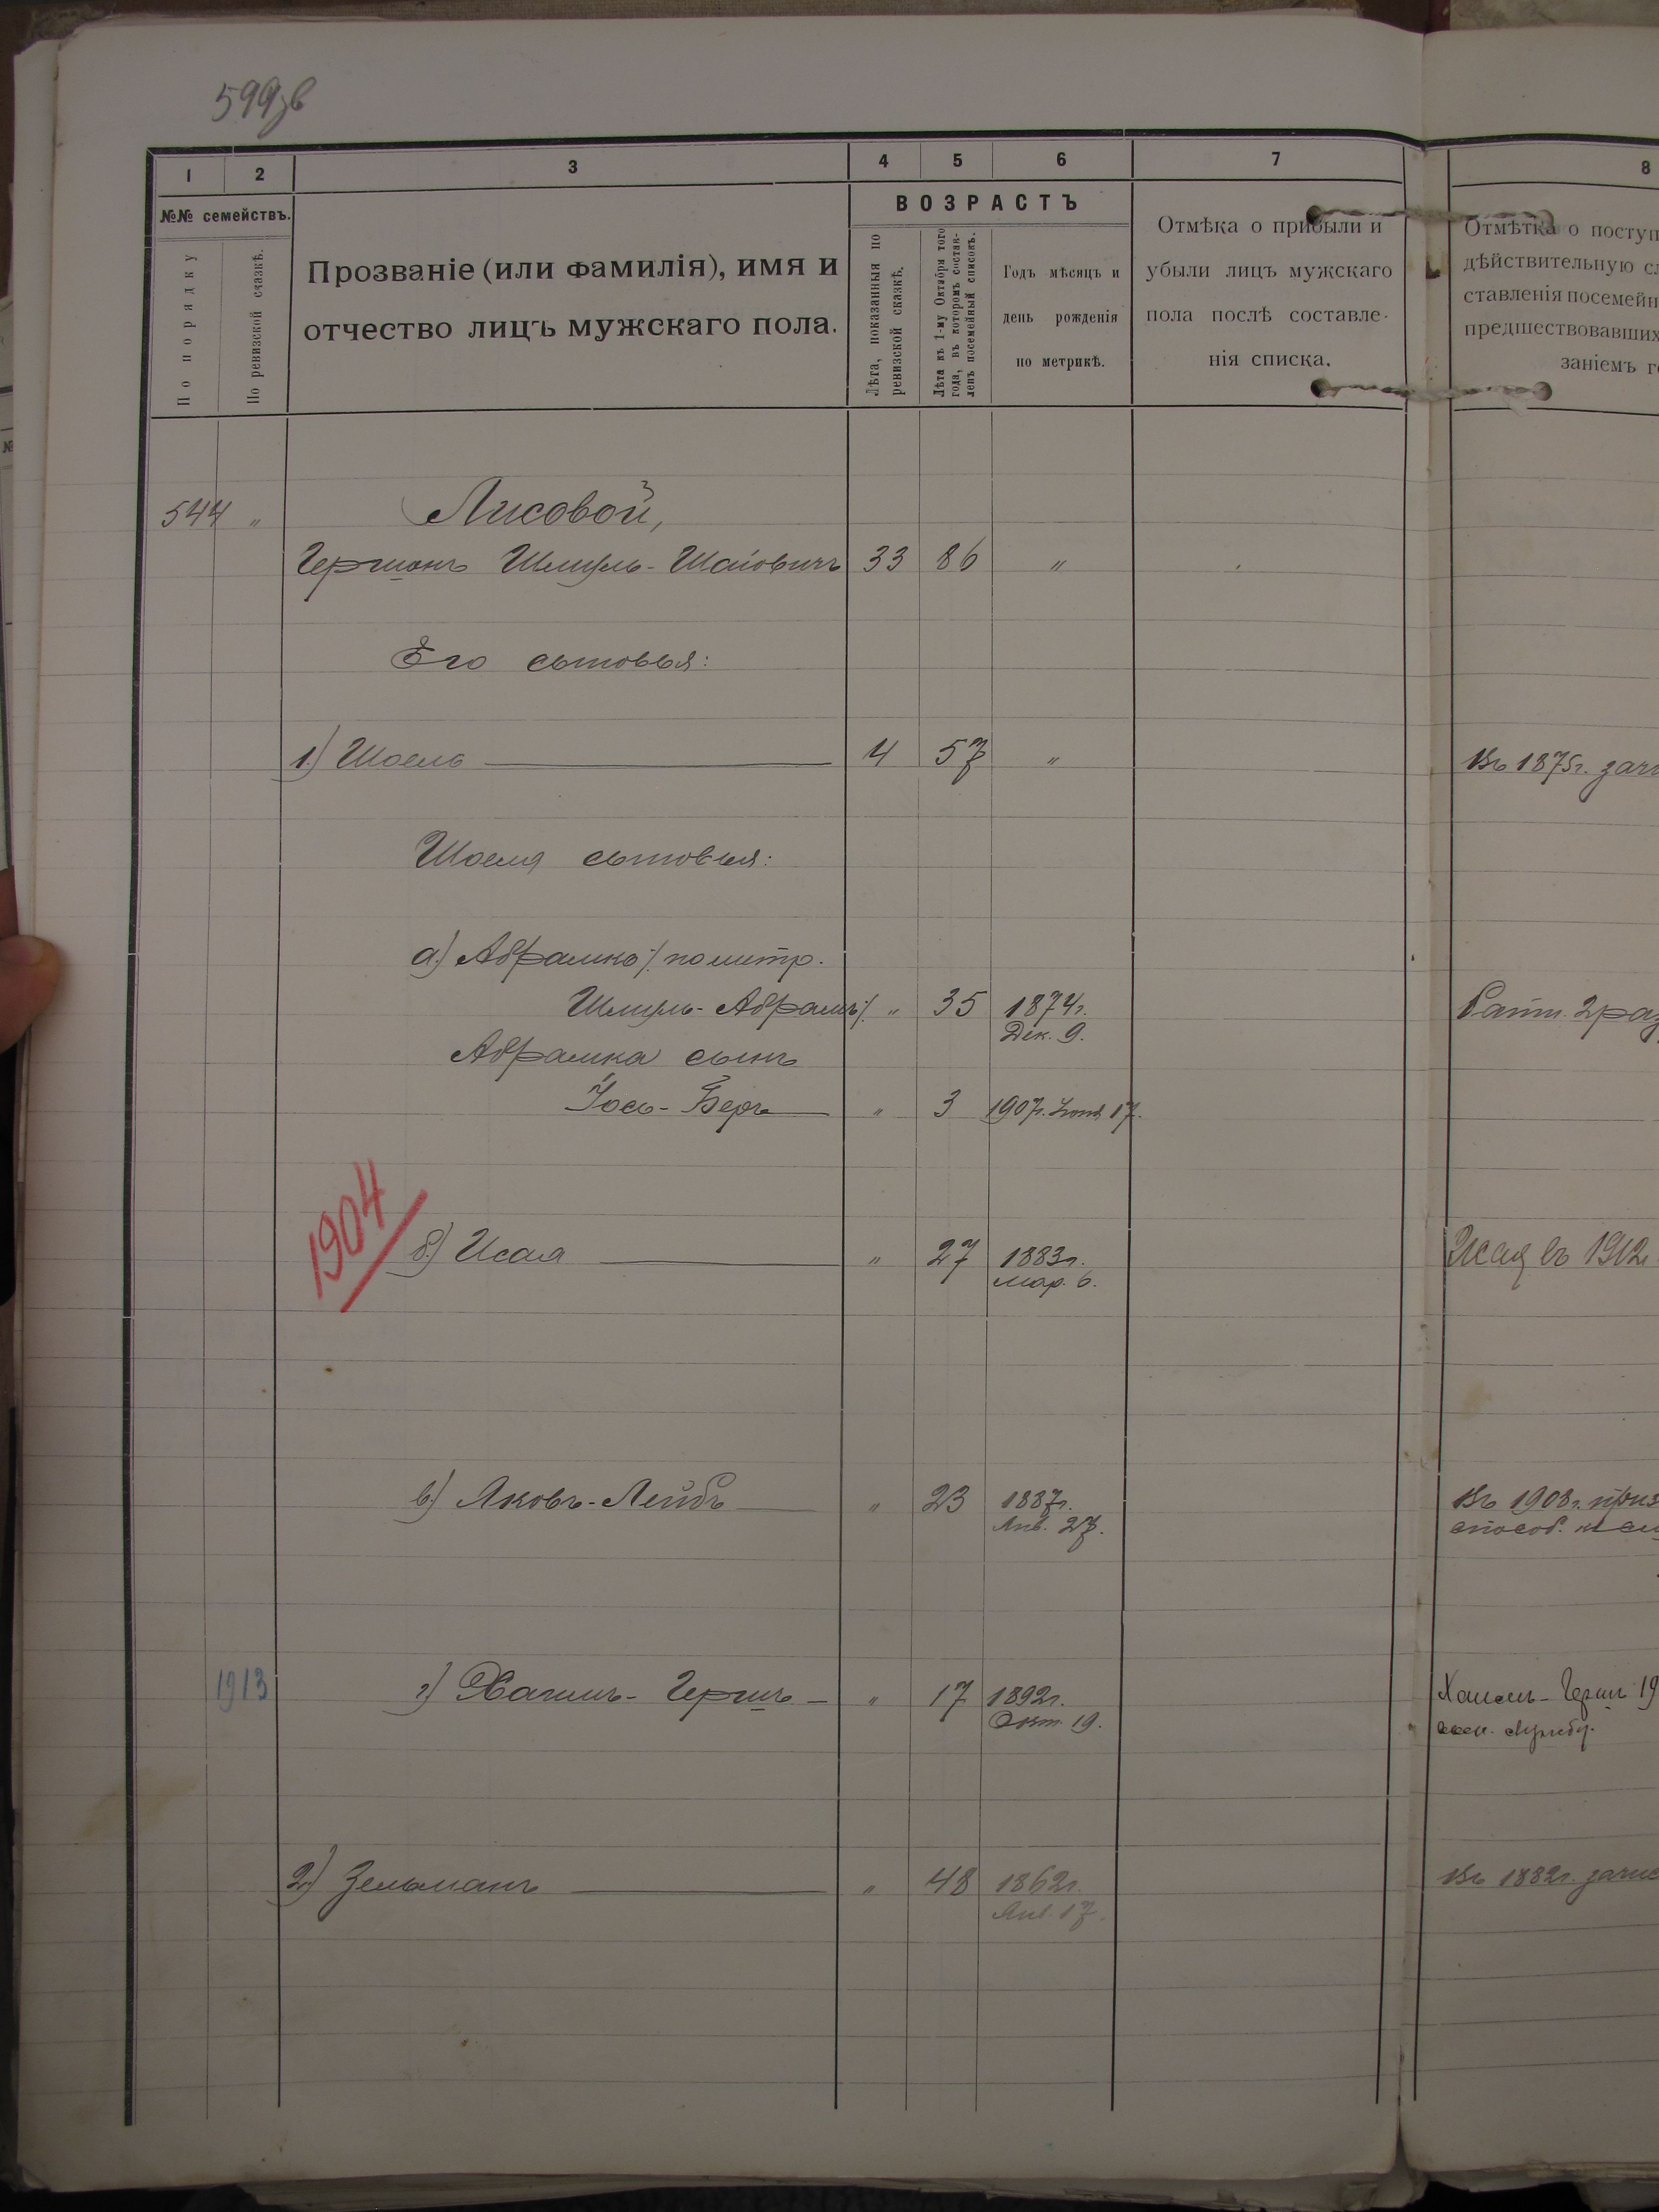 599зв
1 2 3 4 5 6 7 8
№№ семействъ.
По порядку
По ревизской сказкѣ.
Прозваніе (или фамилія), имя и
отчество лицъ мужскаго пола.
ВОЗРАСТЪ
Лѣта, показанныя по
ревизской сказкѣ.
Лѣта къ 1-му Октября того
года, въ которомъ состав-
ленъ посемейный списокъ.
Годъ мѣсяцъ и
день рожденія
по метрикѣ.
Отмѣка о прибыли и
убыли лицъ мужскаго
пола послѣ составле-
нія списка.
Отмѣтка о поступ
дѣйствительную сл
ставленія посемейн
предшествовавших
заніемъ г
544 " Лисовой,
Гершонъ Шмуль-Шаіовичъ 33 86 "
Его сыновья:
1.) Шоель 4 57 " Въ 1875г. зач
Шоеля сыновья:
а.) Абрамко /: по метр.
Шмуль-Абрамъ :/ " 35 1874г. Ратн. 2 раз
Дек. 9.
Абрамка сынъ
Іось-Беръ " 3 1907г. 17.
1904
б.) Исая " 27 1883г. Исая въ 1912г.
Мар. 6.
в.) Яковъ-Лейбъ " 23 1887г. Въ 1908г. приз
Янв. 27. способ. к
1913 г.) Хаимъ-Гершъ " 17 1892г. Гершъ 19
Окт. 19. службу.
2.) Зельманъ " 48 1862г. Въ 1882г. зачис
Янв. 17.
№